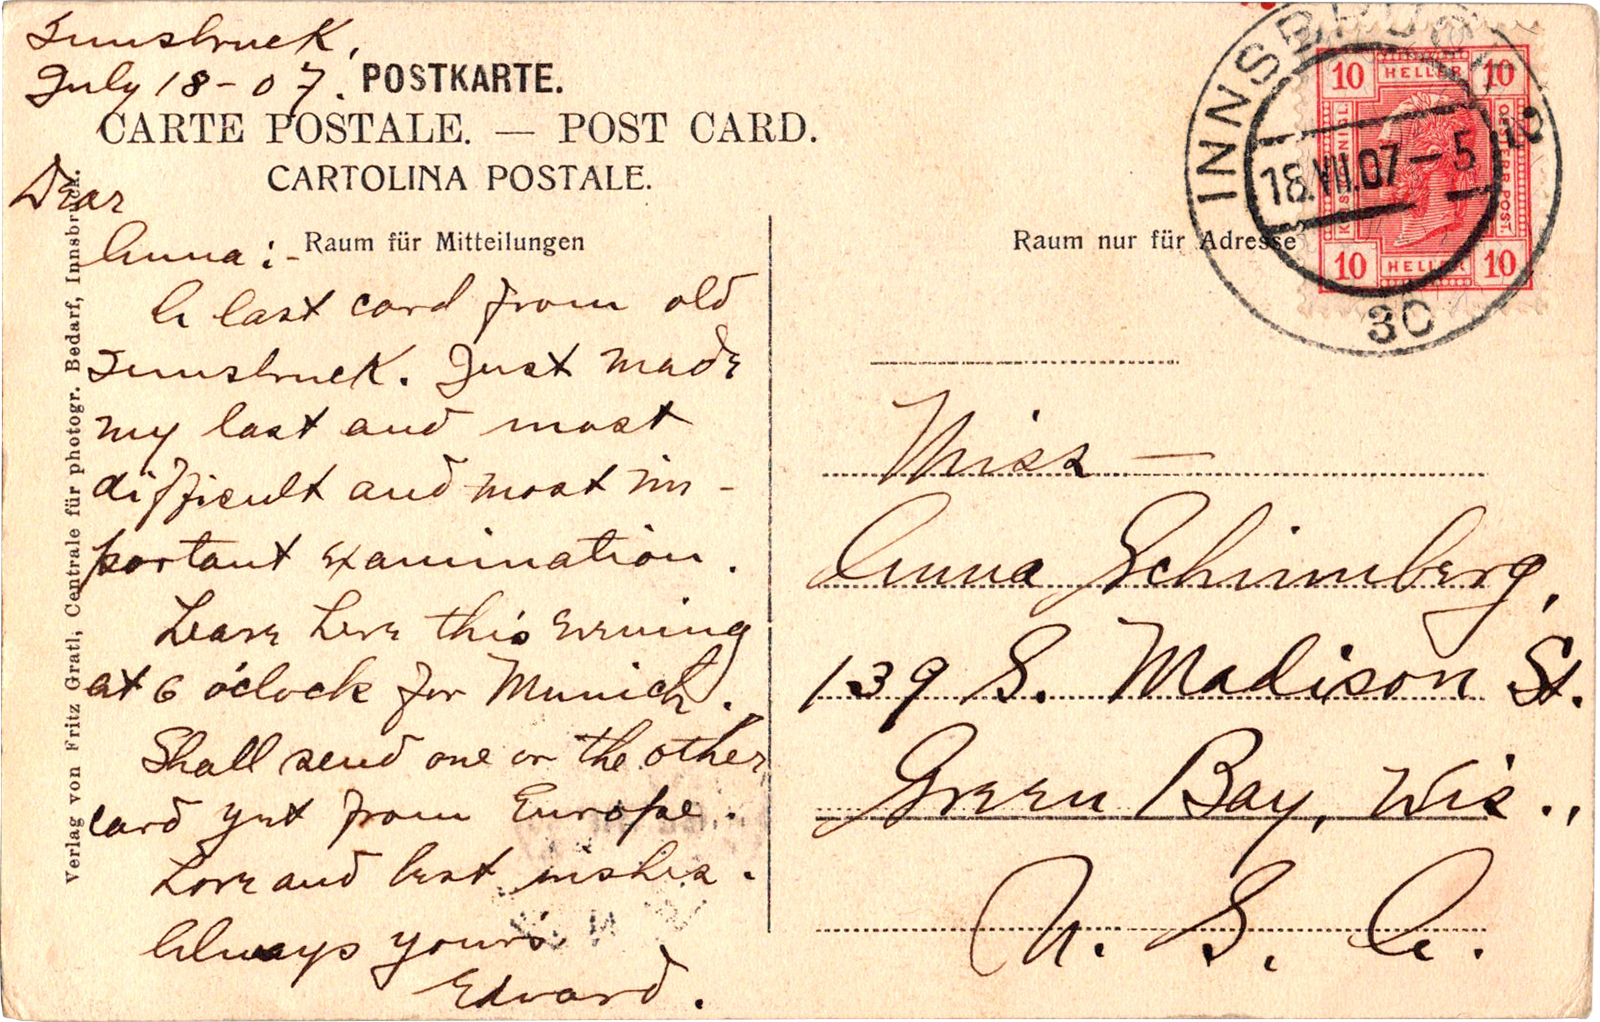 Innsbruck,
July 18-07.
POSTKARTE.
CARTE POSTALE. — POST CARD.
CARTOLINA POSTALE.
Dear
Anna:-
Raum für Mitteilungen
A last card from old
Innsbruck. Just made
my last and most
difficult and most im-
portant examination.
Leave here this evening
at 6 o'clock for Munich.
Shall send one or the other
card yet from Europe.
Love and best wishes.
Always yours
Edward.
Verlag von Fritz Gratl, Centrale für photogr. Bedarf, Innsbruck.
INNSBRUCK 2
18.VII.07-5
30
10 HELLER 10
KAIS. KÖNIGL.
OESTERR. POST.
10 HELLER 10
Raum nur für Adresse
Miss —
Anna Schimberg,
139 S. Madison St.
Green Bay, Wis.,
U. S. A.